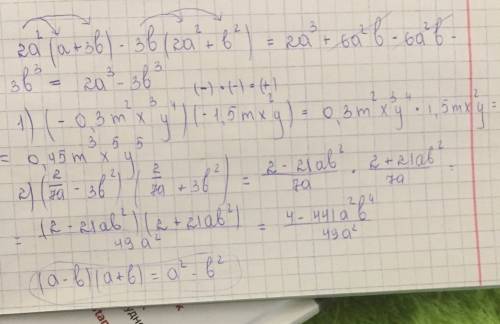 2a²(a+3b) - 3b(2a²+b²) = 2a³ + 6a²b - 6a²b -
3b³ = 2a³ - 3b³
(-)·(-) = (+)
1) (-0,3m²x³y⁴)(-1,5mx²y) = 0,3m²x³y⁴ · 1,5mx²y =
= 0,45m³x⁵y⁵
2) (2/7a - 3b²)(2/7a + 3b²) = (2-21ab²)/7a · (2+21ab²)/7a =
= (2-21ab²)(2+21ab²)/49a² = (4-441a²b⁴)/49a²
(a-b)(a+b) = a² - b²